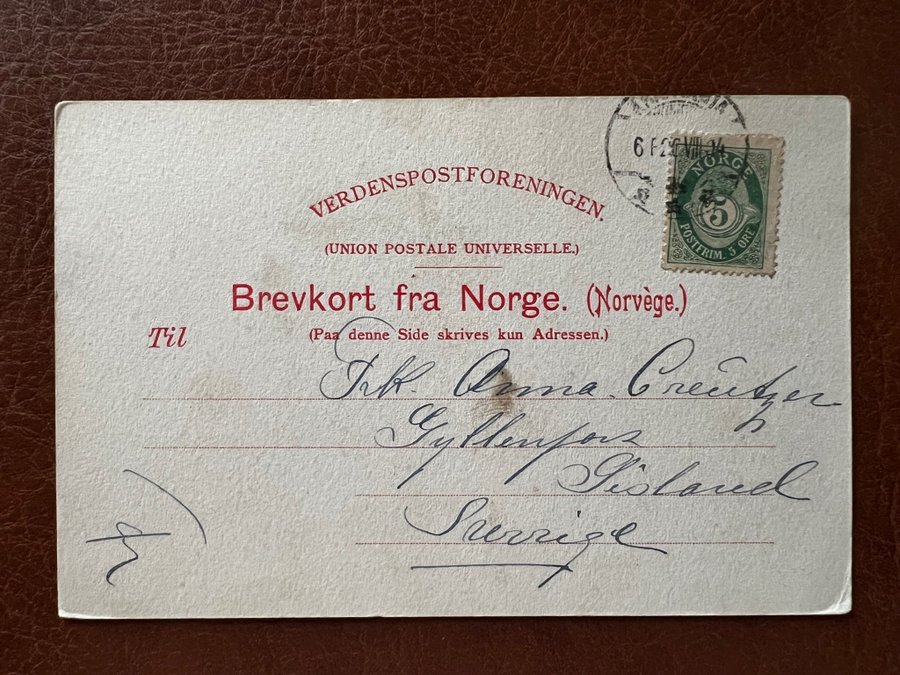 KRISTIANIA
6 F 25 VIII 04
NORGE
5
POSTFRIM. 5 ØRE
VERDENSPOSTFORENINGEN.
(UNION POSTALE UNIVERSELLE.)
Brevkort fra Norge. (Norvège.)
(Paa denne Side skrives kun Adressen.)
Til
Frk. Anna Creutzer
Gyllenfors
Gisland
Sverrige